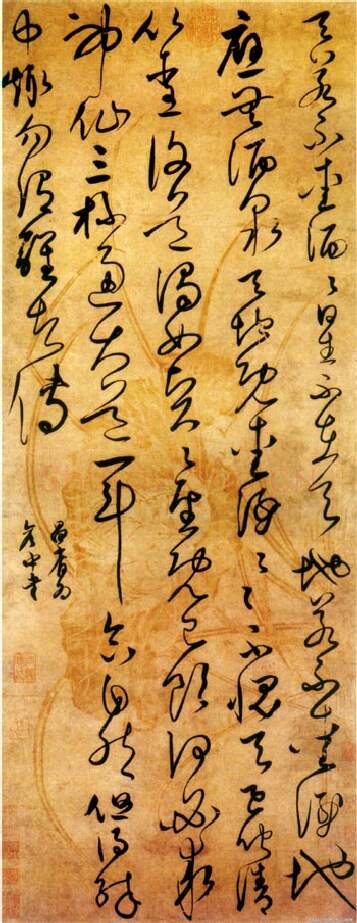 天若不愛酒〻星不在天地若不愛酒地
應無酒泉天地既愛酒〻〻不愧天已聞清
比聖復道濁如賢〻聖既已飲何必求
神仙三杯通大道一斗合自然但得醉
中趣勿謂醒者傳